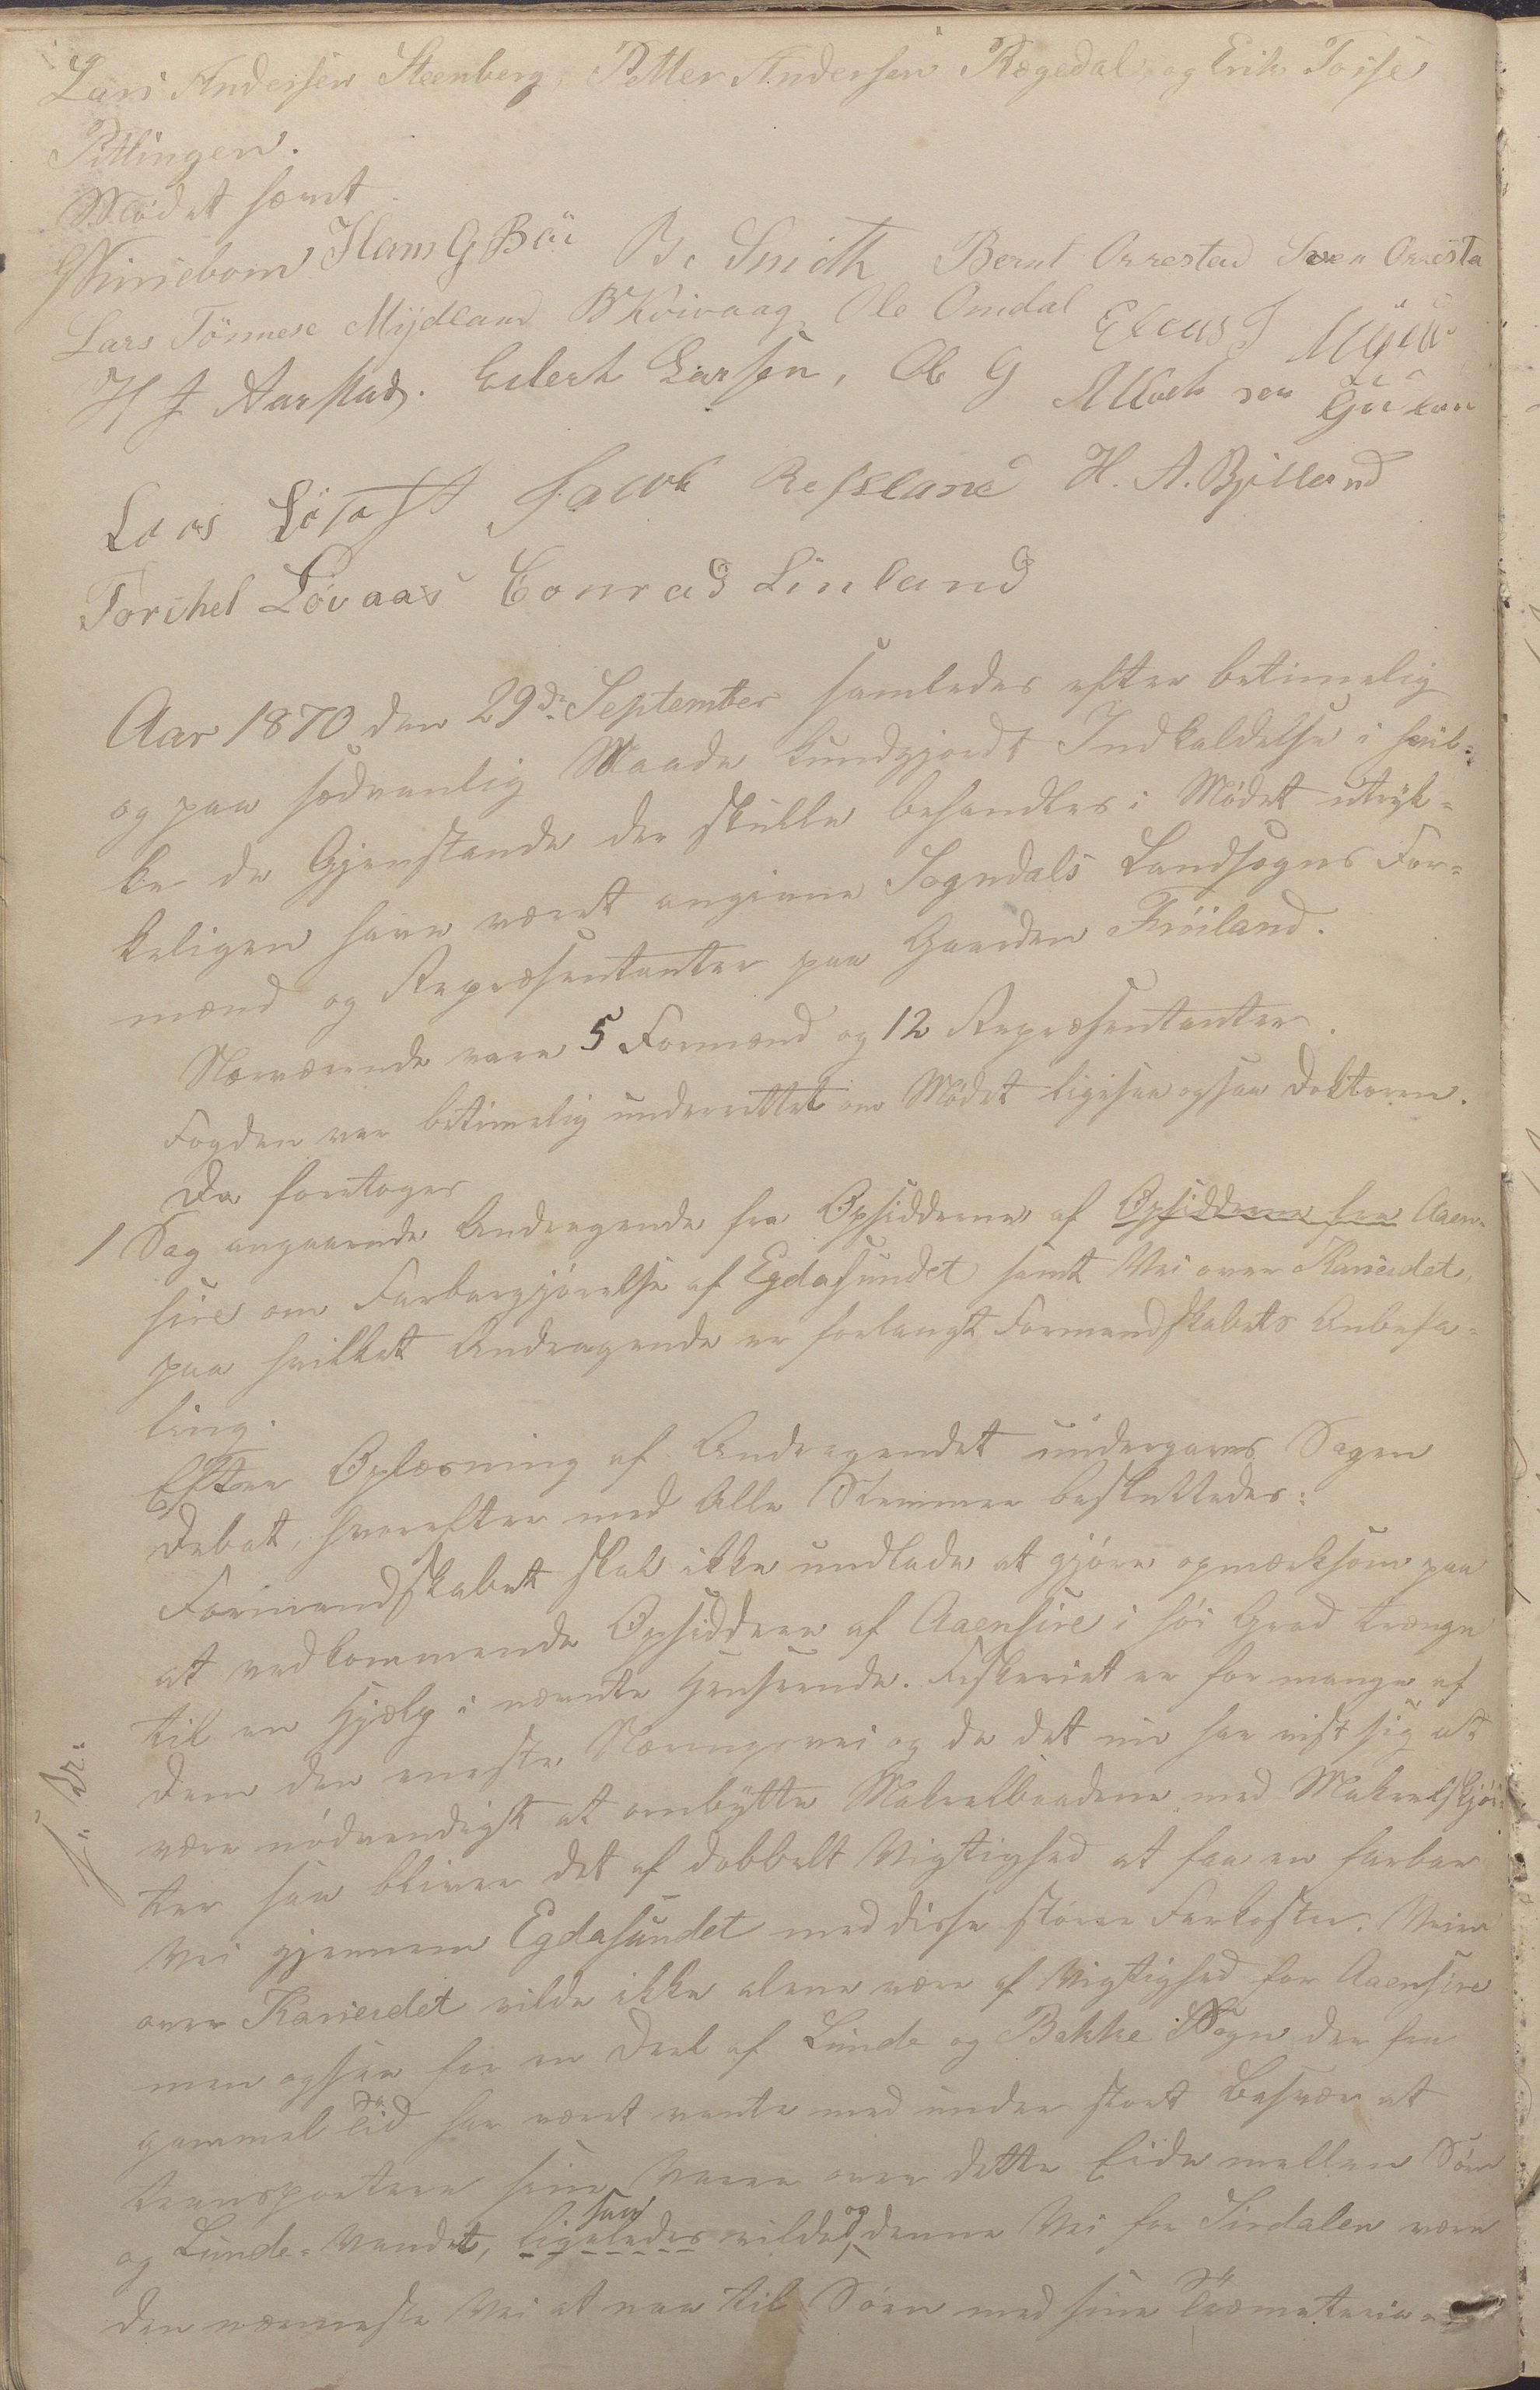 Lars Andersen Steenberg, Petter Andersen Rægedal, og Erik Tosse
Pitlingen.
Mødet hævet
GWiniebom Hans G Böe B. Smith Bernt Orrestad Sven Orresta
Lars Tönnese Mydland B Kvivaag, Ole Omdal Elcas J
H J Aarstad. Eilert Larsen, Ole G
Lars Jacob Refsland H. A. Bjelland
Torchel Lövaas Conrad Linland
Aar 1870 den 29de September samledes efter betimelig
og paa sedvanlig Maade kundgjordt Indkaldelse i hvil-
ke de Gjenstande der skulle behandles i Mødet utryk-
keligen have været angivne Sogndals Landsogns For-
mænd og Repræsentanter paa Gaarden Frøiland.
Nærværende vare 5 Formænd og 12 Repræsentanter.
Fogden var betimelig underrettet om Mødet ligesaa ogsaa Doktoren.
Da foretoges
1 Sag angaaende Andragende fra Opsidderne af Opsidderne fra Aaen-
sire om Farbargjörelse af Egdasundet samt Vei over Kaneidet,
paa hvilket Andragende er forlangt Formandskabets Anbefa-
ling.
Efter Oplæsning af Andragendet undergaves Sagen
Debat, hvorefter med Alle Stemmer besluttedes:
Formandskabet skal ikke undlade at gjöre opmærksom paa
at vedkommende Opsiddere af Aaensire i höi Grad trænge
til en Hjælp i nævnte Henseende. Fiskeriet er for mange af
dem den eneste Næringsvei og da det nu har vist sig at
være nödvendigt at ombytte Makrelbaadene med Makrelskjöi-
ter saa bliver det af dobbelt Vigtighed at faa en farbar
Vei gjennem Egdasundet med disse större Farkoster. Veien
over Kaneidet vilde ikke alene være af Vigtighed for Aaensire
men ogsaa for en Deel af Lunde og Bakke Sogn der fra
gammel Tid har været vante med under stort Besvær at
transportere sine Varer over dette Eide mellem Söen
og Lunde-Vandet, ligeledes saa vilde og denne Vei for Sirdalen være
den nærmeste Vei at naa til Söen med sine Træmateria-